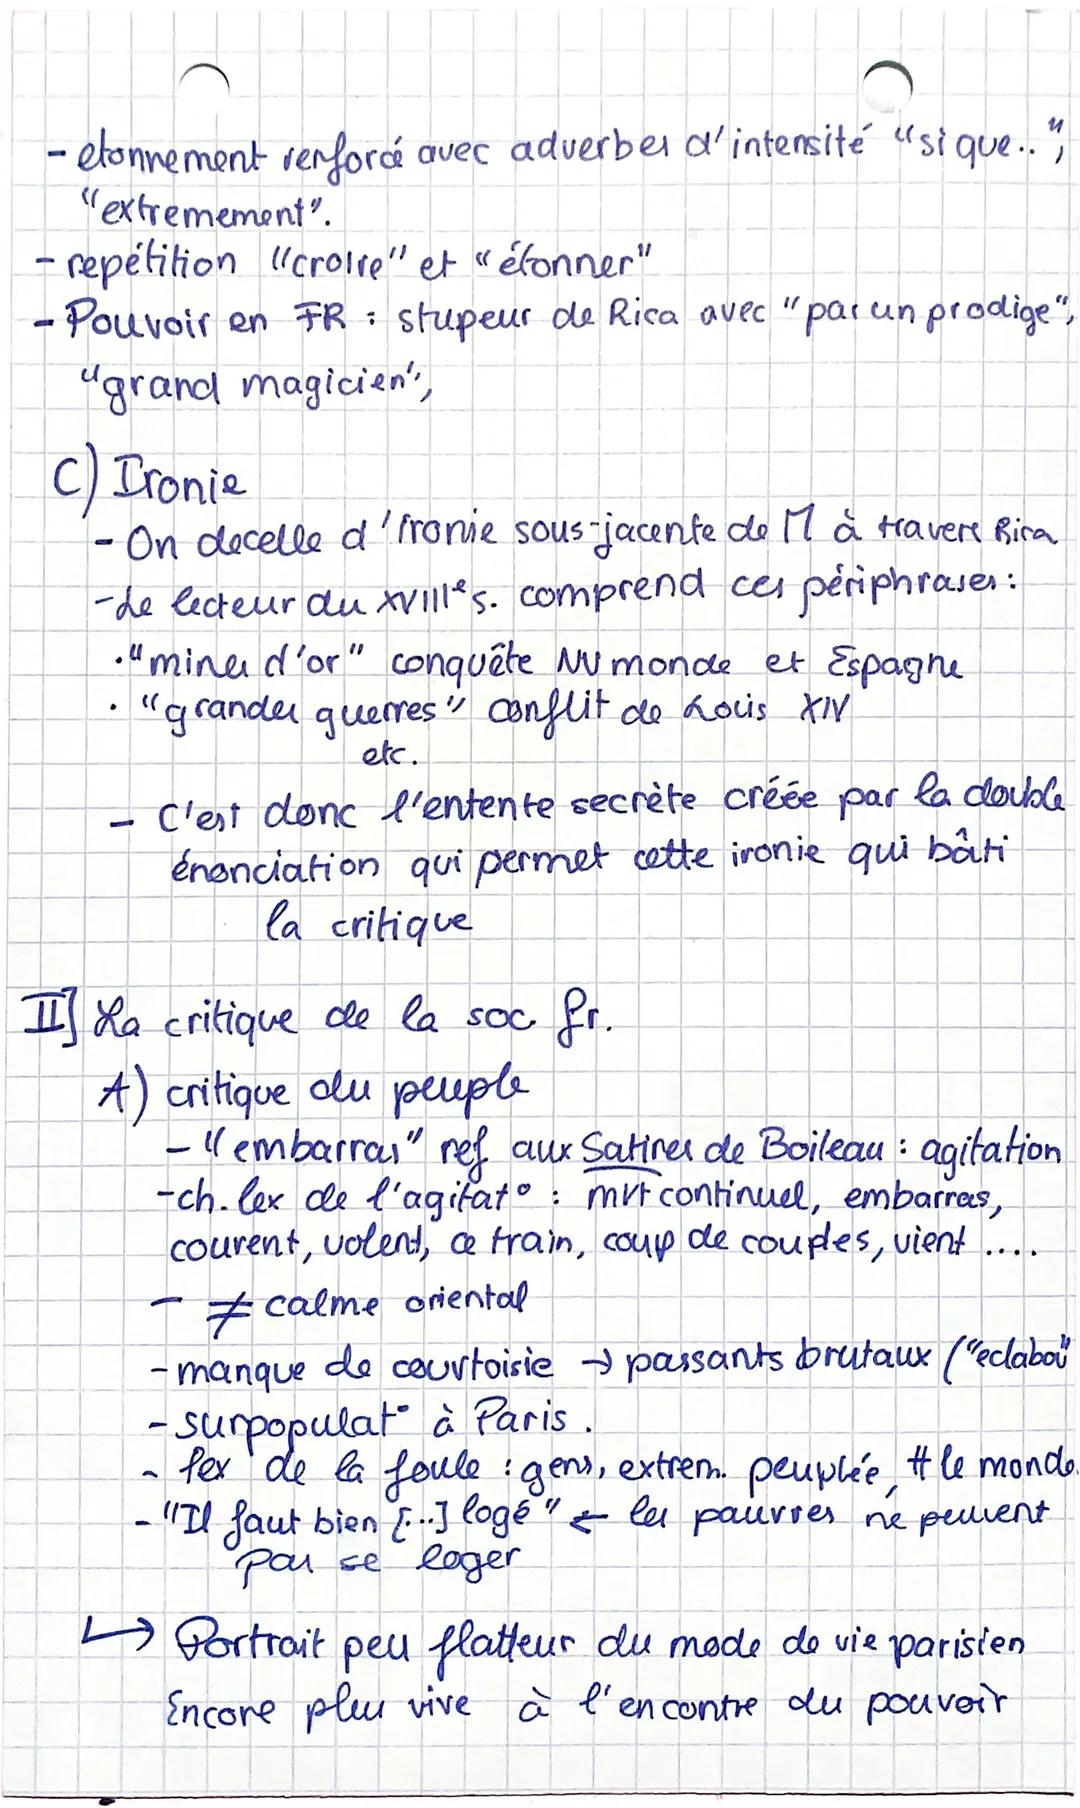 - etonnement renforcé avec adverbes d'intensité "si que..",
"extremement".
- repétition "croire" et "étonner"
- Pouvoir en FR : stupeur de Rica avec "par un prodige",
"grand magicien",
C) Ironie
- On decelle d'Ironie sous-jacente de M à travers Rica
- Le lecteur du XVIIIe s. comprend ces périphrases :
· "mines d'or" conquête NV monde et Espagne
· "grandes guerres" conflit de Louis XIV
etc.
- C'est donc l'entente secrète créée par la double
énonciation qui permet cette ironie qui bâti
la critique
II] La critique de la soc fr.
A) critique du peuple
- "embarras" ref aux Satires de Boileau : agitation
- ch. lex de l'agitat° : mvt continuel, embarras,
courent, volent, ce train, coup de coudes, vient ....
- ≠ calme oriental
- manque de courtoisie → passants brutaux ("eclabou"
- surpopulat° à Paris.
- lex de la foule : gens, extrem. peuplée, # le monde.
- "Il faut bien [...] logé" ← les pauvres ne peuvent
pas se loger
↳ Portrait peu flatteur du mode de vie parisien
Encore plus vive à l'encontre du pouvoir